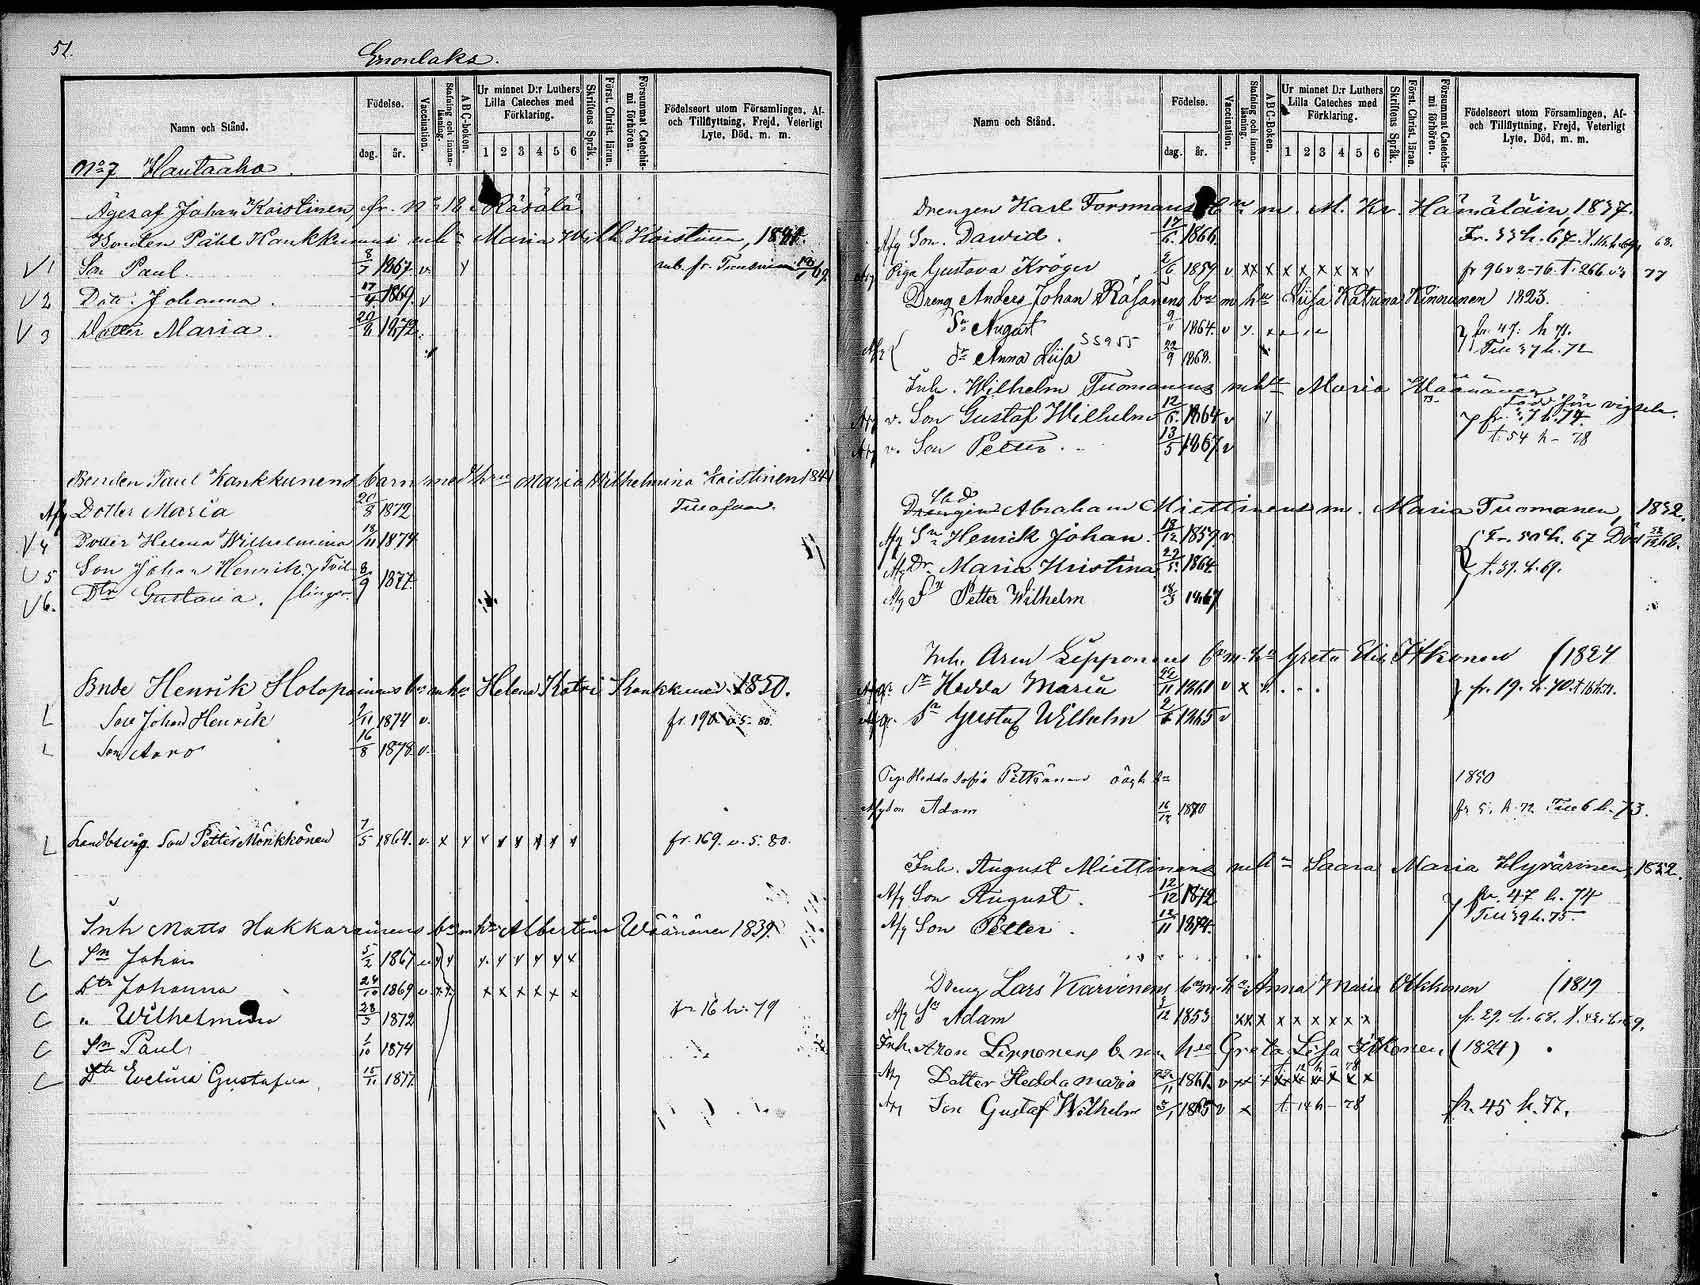 51.
Enonlaks.
Namn och Stånd.
Födelse.
dag. år.
Vaccination.
Stafning och innanläsning.
ABC-boken.
Ur minnet D:r Luthers Lilla Cateches med Förklaring.
1 2 3 4 5 6
Skriftens Språk.
Först. Christ. läran.
Försummat Catechismi förhören.
Födelseort utom Församlingen, Af- och Tillflyttning, Frejd, Veterligt Lyte, Död, m. m.
No 7 Hautaaho.
Äges af Johan Koistinen, fr. No 18 Räsälä
Bonden Påhl Kankkunens mhu Maria Wilh Koistinen, 1841.
V 1 Son Paul. 8/7 1867. v. y
V 2 Dotr. Johanna. 17/4 1869. v
V 3 Dotter Maria. 20/8 1872.
Bonden Paul Kankkunens barn med hru Maria Wilhelmina Koistinen 1841
Afg Dotter Maria 20/8 1872
V 4 Dotter Helena Wilhelmina 18/11 1874
V 5 Son Johan Henrik } Tvil- 8/9 1877.
V 6. Dtr Gustava. } lingar.
Bnde Henrik Holopainens bn m hu Helena Katri Kankkunen 1850.
L Son Johan Henrik 2/11 1874 v. fr. 190 v. 5. 80.
L Son Aaro 16/8 1878. v.
L Landbvärg. Son Petter Mönkkönen 7/5 1864. v. x y v y y y y y fr. 169. v. 5. 80.
Inh Matts Hakkarainens bn m hu Albertina Wäänänen 1839.
L Sn Johan 5/2 1867 v y y y. y y y y x
L Dtr Johanna 24/10 1869 v x x x x x x x x
L " Wilhelmina 28/3 1872 fr 16 h. 79
L Sn Paul 1/10 1874
L Dtr Evelina Gustafva 15/11 1877
Namn och Stånd.
Födelse.
dag. år.
Vaccination.
Stafning och innanläsning.
ABC-boken.
Ur minnet D:r Luthers Lilla Cateches med Förklaring.
1 2 3 4 5 6
Skriftens Språk.
Först. Christ. läran.
Försummat Catechismi förhören.
Födelseort utom Församlingen, Af- och Tillflyttning, Frejd, Veterligt Lyte, Död, m. m.
Drengen Karl Forsmans bn m. M. Kr. Hämäläin, 1837.
Afg Son. Dawid. 17/6 1866. Fr. 33 h. 67.
Afg Piga Gustava Kröger 2/6 1859 v xx x x x x x x v fr 96 v 2-76. t. 266 v 3 77
Dreng Anders Johan Räsänens bn m hu Liisa Katrina Kinnunen 1823.
Sn August 9/11 1864. v fr. 47. h 71.
Afg { dr Anna Liisa 55955 22/9 1868. Till 37 h. 72
Inh. Wilhelm Tuomainens mhu Maria Wäänänen
Afg v. Son Gustaf Wilhelm 12/6 1864 v född före vigseln. fr. 37 h. 74.
Afg v. Son Petter. 13/5 1867 v t. 54 h - 78
Abraham Miettinens m. Maria Tuomanen, 1832.
Afg Sn Henrik Johan. 18/12 1859 v. Fr. 50 h. 67
Afg Dr. Maria Kristina. 29/5 1864. t. 39. h. 69.
Afg Sn Petter Wilhelm 18/3 1867
Inh. Aron Lipponens bn m. hu Greta Lisa Itkonen (1824
Afg Dr Hedda Maria 22/11 1861 v x fr. 19. h. 70. t 16 h. 71.
Afg Sn Gustaf Wilhelm 1865 v
Pig. Hedda Sofia Pitkänen oägt bn 1850
Afg Son Adam 16/12 1870 fr 5. h. 72 Till 6 h. 73.
Inh. August Miettinens mhu Saara Maria Hyvärinen, 1852.
Afg Son August. 12/12 1872 fr. 47 h. 74
Afg Son Petter. 12/11 1874. Till 39 h. 75.
Dreng Lars Karvinens bn m. hu Anna Maria Okkonen (1819
Afg Sn Adam 5/12 1853 xx x x x x x x x fr. 29. h. 68. t. 43. h. 69.
Inh. Aron Lipponens b. m hru Greta Lisa Itkonen (1824)
Afg Dotter Hedda Maria 22/11 1861. v xx x x x x x x x
Afg Son Gustaf Wilhelm 3/1 1865 v x t. 14 h - 78 fr. 45 h. 77.